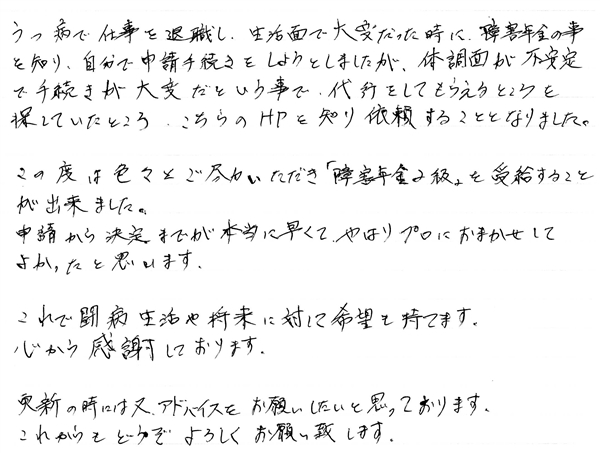 うつ病で仕事を退職し、生活面で大変だった時に、障害年金の事
を知り、自分で申請手続きをしようとしましたが、体調面が不安定
で手続きが大変だという事で、代行をしてもらえるところを
探していたところ、こちらのHPを知り依頼することとなりました。
この度は色々とご尽力いただき「障害年金2級」を受給すること
が出来ました。
申請から決定までが本当に早くて、やはりプロにおまかせして
よかったと思います。
これで闘病生活や将来に対して希望も持てます。
心から感謝しております。
更新の時には又、アドバイスをお願いしたいと思っております。
これからもどうぞよろしくお願い致します。